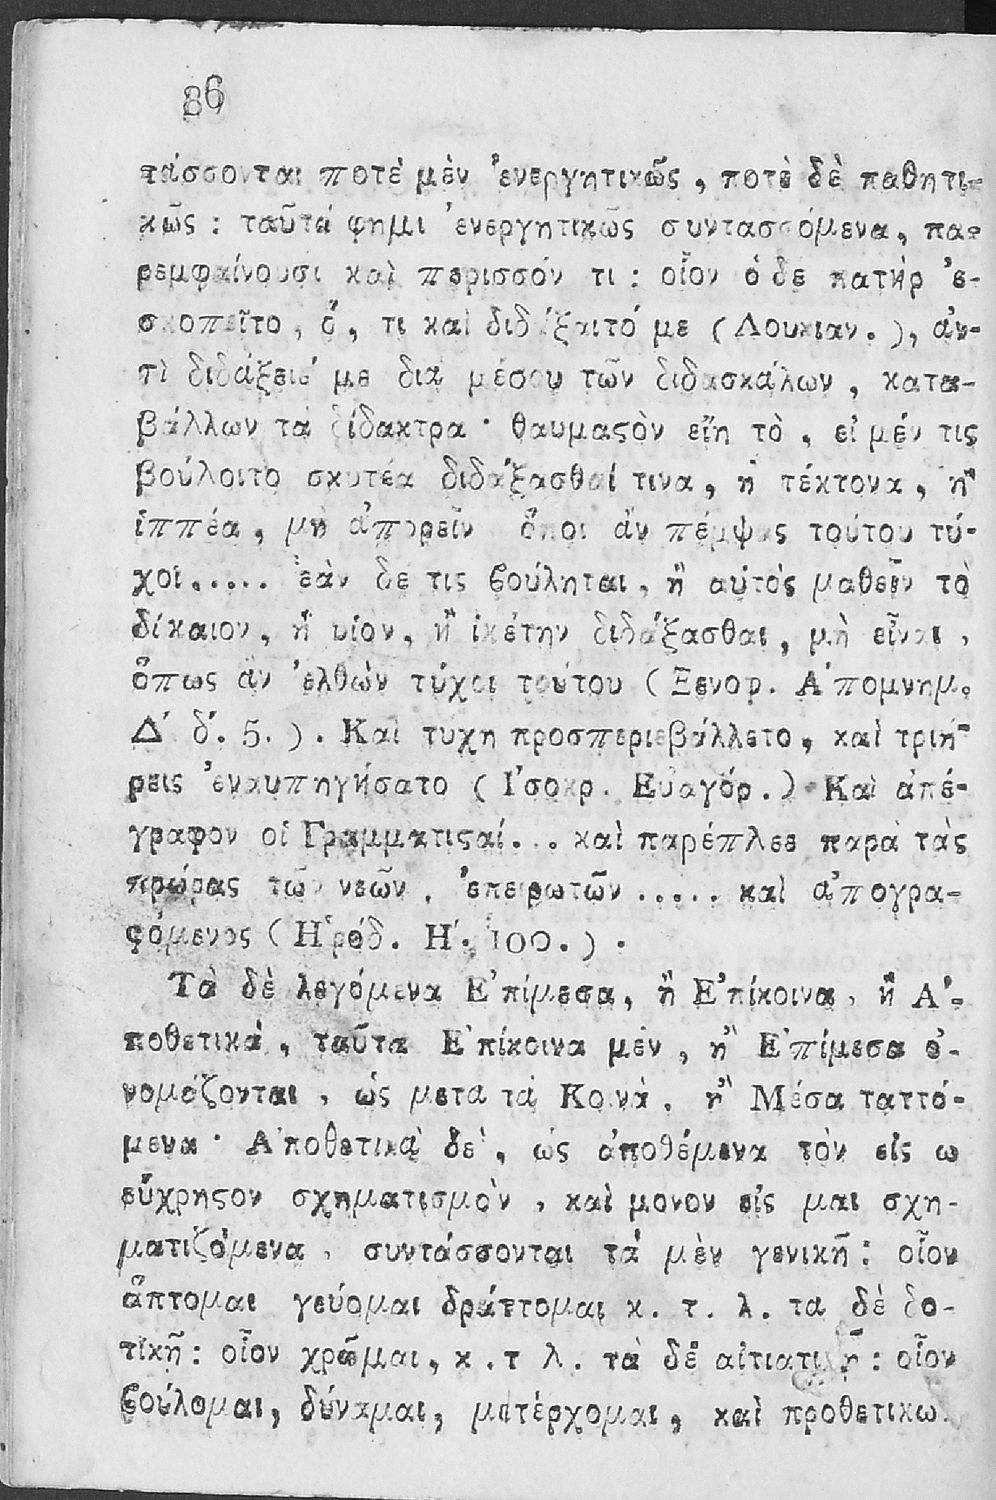 86
τάσσονται ποτὲ μὲν ἐνεργητικῶς, ποτὲ δὲ παθητι-
κῶς : ταῦτά φημι ἐνεργητικῶς συντασσόμενα, πα-
ρεμφαίνουσι καὶ περισσόν τι : οἷον ὁ δε πατὴρ ἐ-
σκοπεῖτο, ὅ, τι καὶ διδάξαιτό με (Λουκιαν.), ἀν-
τὶ διδάξειέ με διὰ μέσου τῶν διδασκάλων, κατα-
βάλλων τὰ δίδακτρα · θαυμαϛὸν εἴη τὸ, εἰ μέν τις
βούλοιτο σκυτέα διδάξασθαί τινα, ἢ τέκτονα, ἢ
ἱππέα, μὴ ἀπορεῖν ὅποι ἂν πέμψας τούτου τύ-
χοι..... ἐὰν δέ τις ϐούληται, ἢ αὐτὸς μαθεῖν τὸ
δίκαιον, ἢ υἱὸν, ἢ ἱκέτην διδάξασθαι, μὴ εἶναι,
ὅπως ἂν ἐλθὼν τύχοι τούτου (Ξενοφ. Ἀπομνημ.
Δ΄ δ΄. 5. ). Καὶ τυχη προσπεριεβάλλετο, καὶ τριή-
ρεις ἐναυπηγήσατο (Ἰσοκρ. Εὐαγόρ.) Καὶ ἀπέ-
γραφον οἱ Γραμματιϛαί... καὶ παρέπλεε παρὰ τὰς
πρώρας τῶν νεῶν, ἐπειρωτῶν ..... καὶ ἀπογρα-
φόμενος (Ἡρόδ. Η΄. 100.).
Τὰ δὲ λεγόμενα Ἐπίμεσα, ἢ Ἐπίκοινα, ἢ Ἀ-
ποθετικά, ταῦτα Ἐπίκοινα μὲν, ἢ Ἐπίμεσα ὀ-
νομάζονται, ὡς μετὰ τὰ Κοινὰ, ἢ Μέσα ταττό-
μενα · Ἀποθετικὰ δὲ, ὡς ἀποθέμενα τὸν εἰς ω
εὔχρηϛον σχηματισμὸν, καὶ μονον εἰς μαι σχη-
ματιζόμενα, συντάσσονται τὰ μὲν γενικῇ : οἷον
ἅπτομαι γεύομαι δράττομαι κ. τ. λ. τα δὲ δο-
τικῇ : οἷον χρῶμαι, κ.τ λ. τὰ δὲ αἰτιατικῇ : οἷον
ϐούλομαι, δύναμαι, μετέρχομαι, καὶ προθετικω